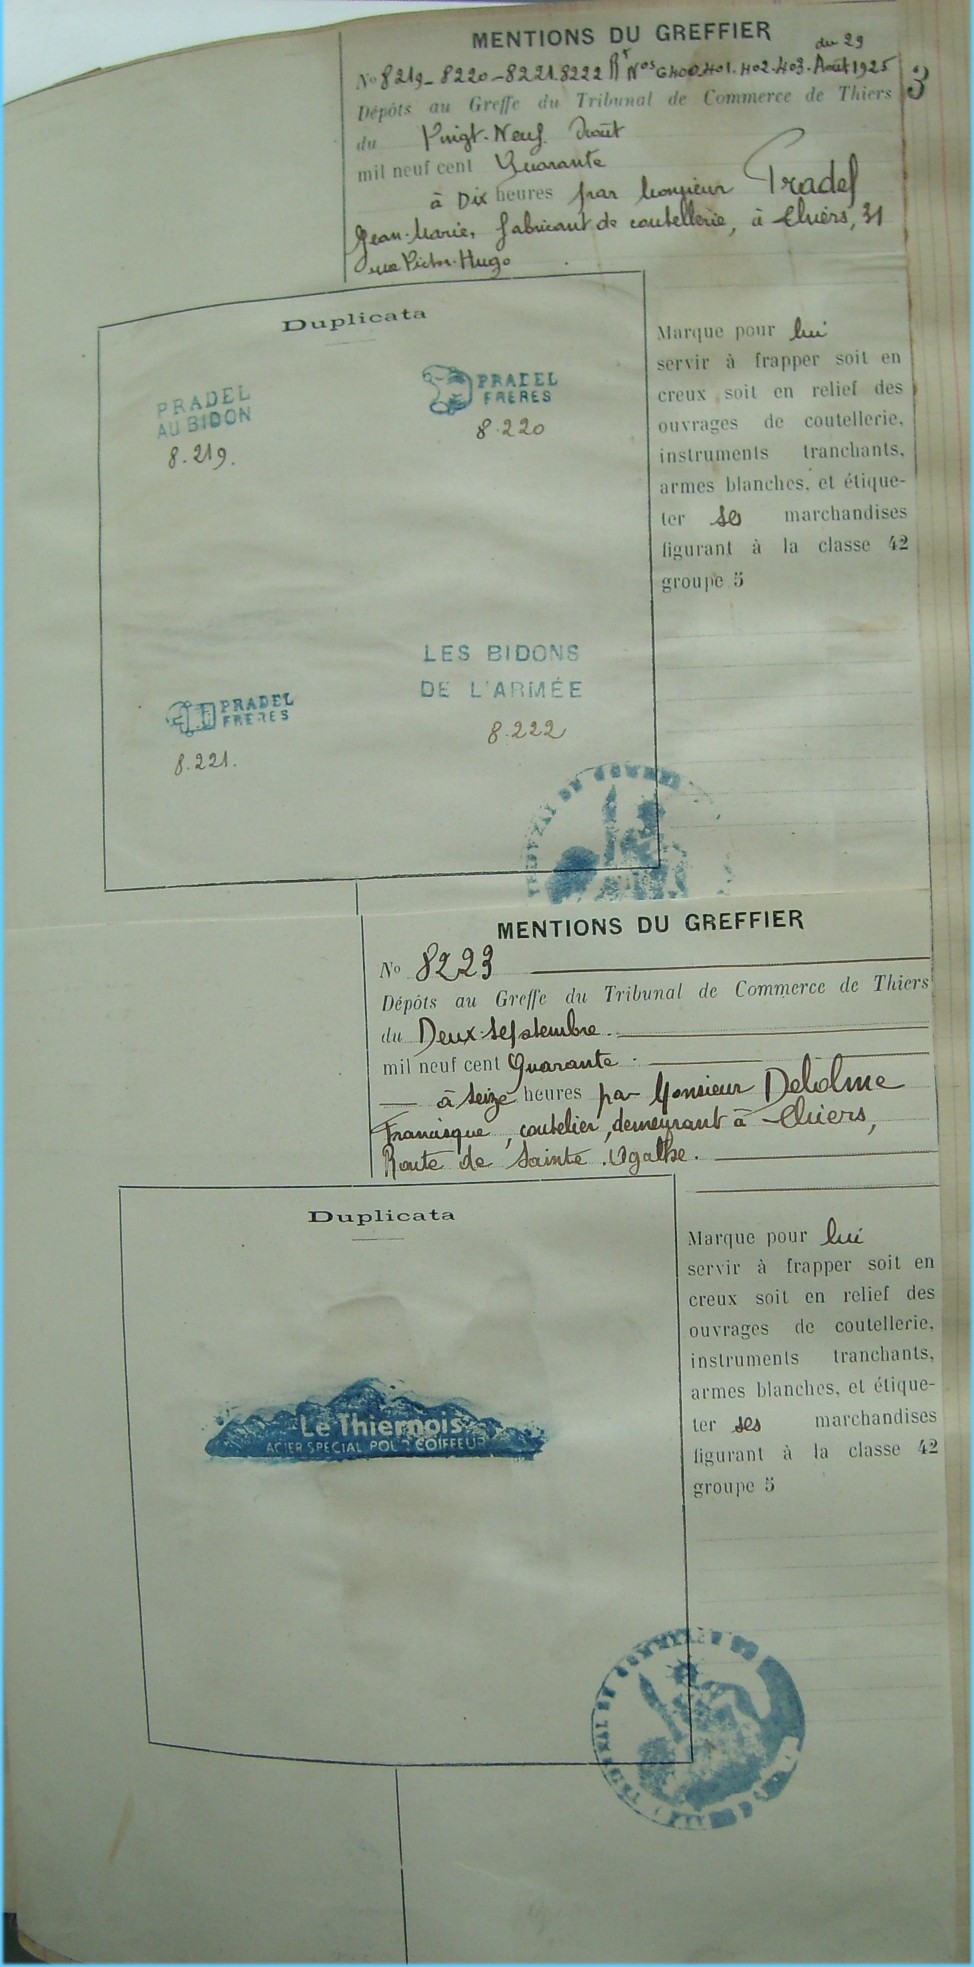 MENTIONS DU GREFFIER
du 29
No 8219-8220-8221.8222 Rt Nos 6400.401.402.403. Août 1925
3
Dépôts au Greffe du Tribunal de Commerce de Thiers
du Vingt-Neuf Août
mil neuf cent Quarante
à Dix heures par Monsieur Pradel
Jean-Marie, fabricant de coutellerie, à Thiers, 31
rue Victor-Hugo
Duplicata
PRADEL
AU BIDON
8.219.
PRADEL
FRERES
8.220
PRADEL
FRERES
8.221.
LES BIDONS
DE L'ARMÉE
8.222
Marque pour lui
servir à frapper soit en
creux soit en relief des
ouvrages de coutellerie,
instruments tranchants,
armes blanches, et étique-
ter ses marchandises
figurant à la classe 42
groupe 5
MENTIONS DU GREFFIER
No 8223
Dépôts au Greffe du Tribunal de Commerce de Thiers
du Deux-Septembre.
mil neuf cent Quarante
à seize heures par Monsieur Delolme
Francisque, coutelier, demeurant à Thiers,
Route de Sainte Agathe.
Duplicata
Le Thiernois
ACIER SPECIAL POUR COIFFEUR
Marque pour lui
servir à frapper soit en
creux soit en relief des
ouvrages de coutellerie,
instruments tranchants,
armes blanches, et étique-
ter ses marchandises
figurant à la classe 42
groupe 5